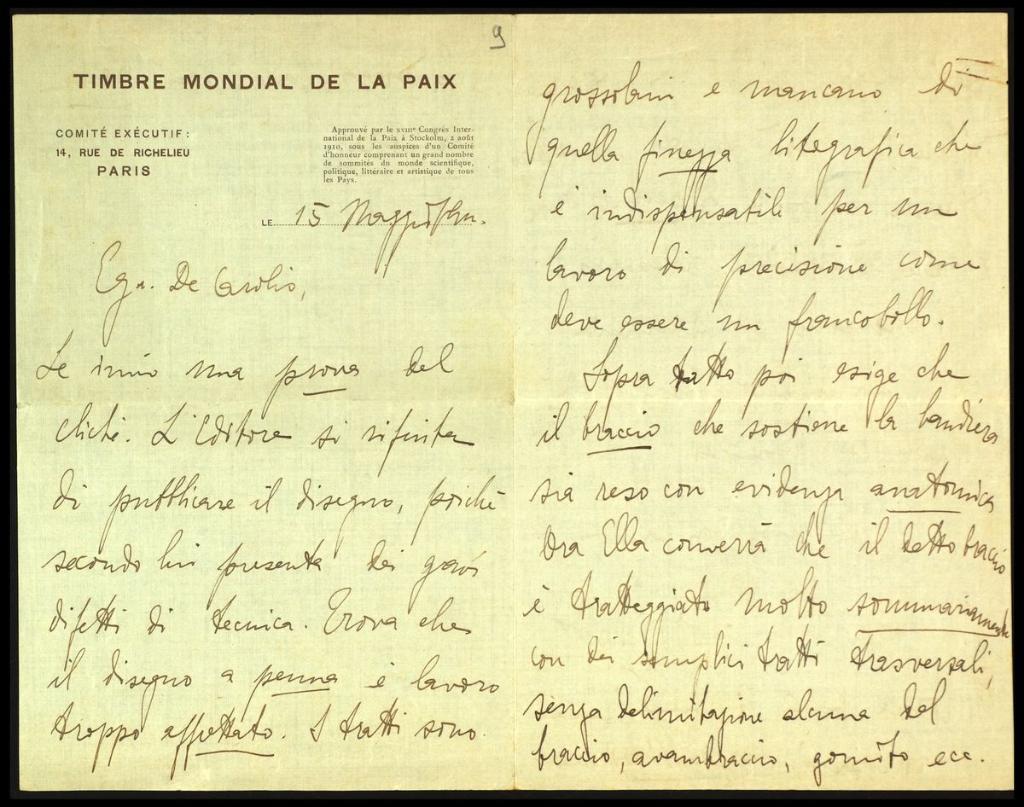 9
TIMBRE MONDIAL DE LA PAIX
COMITÉ EXÉCUTIF :
14, RUE DE RICHELIEU
PARIS
Approuvé par le XVIIIe Congrès Inter-
national de la Paix à Stockolm, 2 août
1910, sous les auspices d'un Comité
d'honneur comprenant un grand nombre
de sommités du monde scientifique,
politique, littéraire et artistique de tous
les Pays.
LE 15 Maggio
Egr. De Carolis,
Le invio una prova del
cliché. L'Editore si rifiuta
di pubblicare il disegno, poiché
secondo lui presenta dei gravi
difetti di tecnica. Trova che
il disegno a penna è lavoro
troppo affrettato. I tratti sono
grossolani e mancano di
quella finezza litografica che
è indispensabile per un
lavoro di precisione come
deve essere un francobollo.
Sopra tutto poi esige che
il braccio che sostiene la bandiera
sia reso con evidenza anatomica
Ora Ella converrà che il detto braccio
è tratteggiato molto sommariamente
con dei semplici tratti trasversali,
senza delimitazione alcuna del
braccio, avambraccio, gomito ecc.